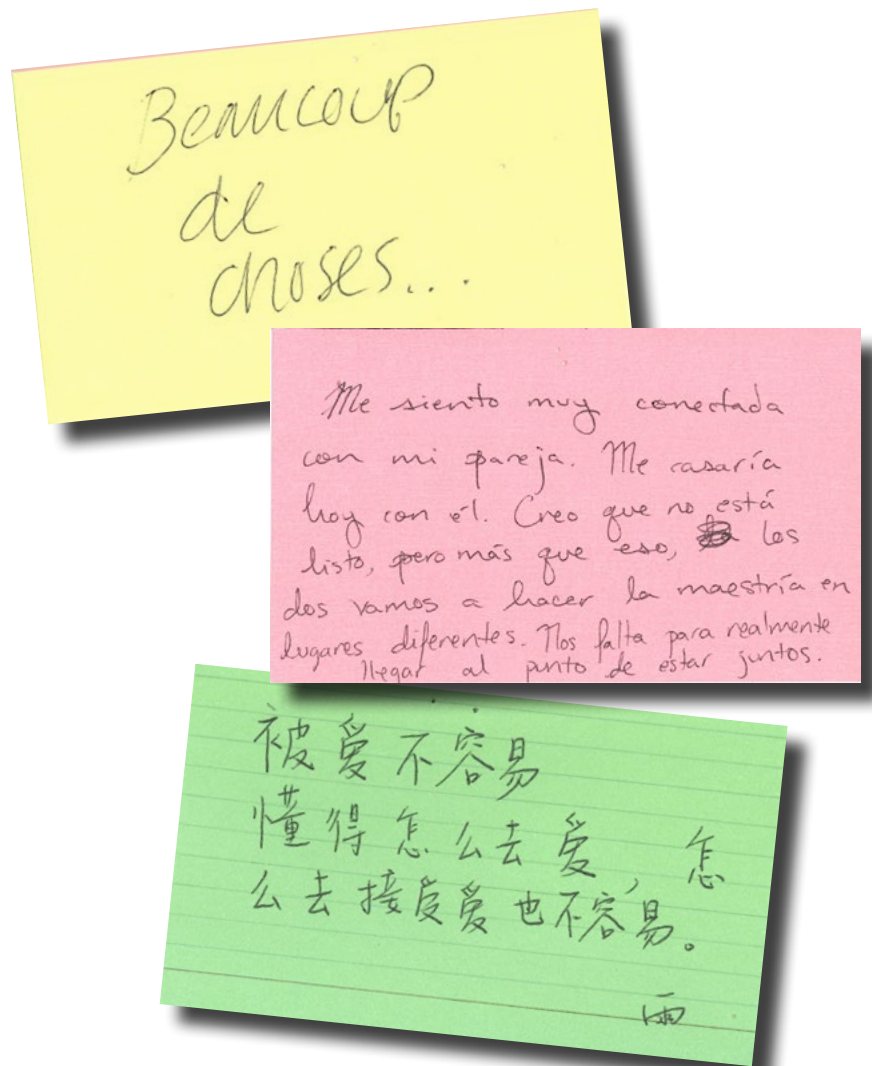 Beaucoup
de
choses...
Me siento muy conectada
con mi pareja. Me casaría
hoy con él. Creo que no está
listo, pero más que eso, los
dos vamos a hacer la maestría en
lugares diferentes. Nos falta para realmente
llegar al punto de estar juntos.
被爱不容易
懂得怎么去爱，怎
么去接受爱也不容易。
雨